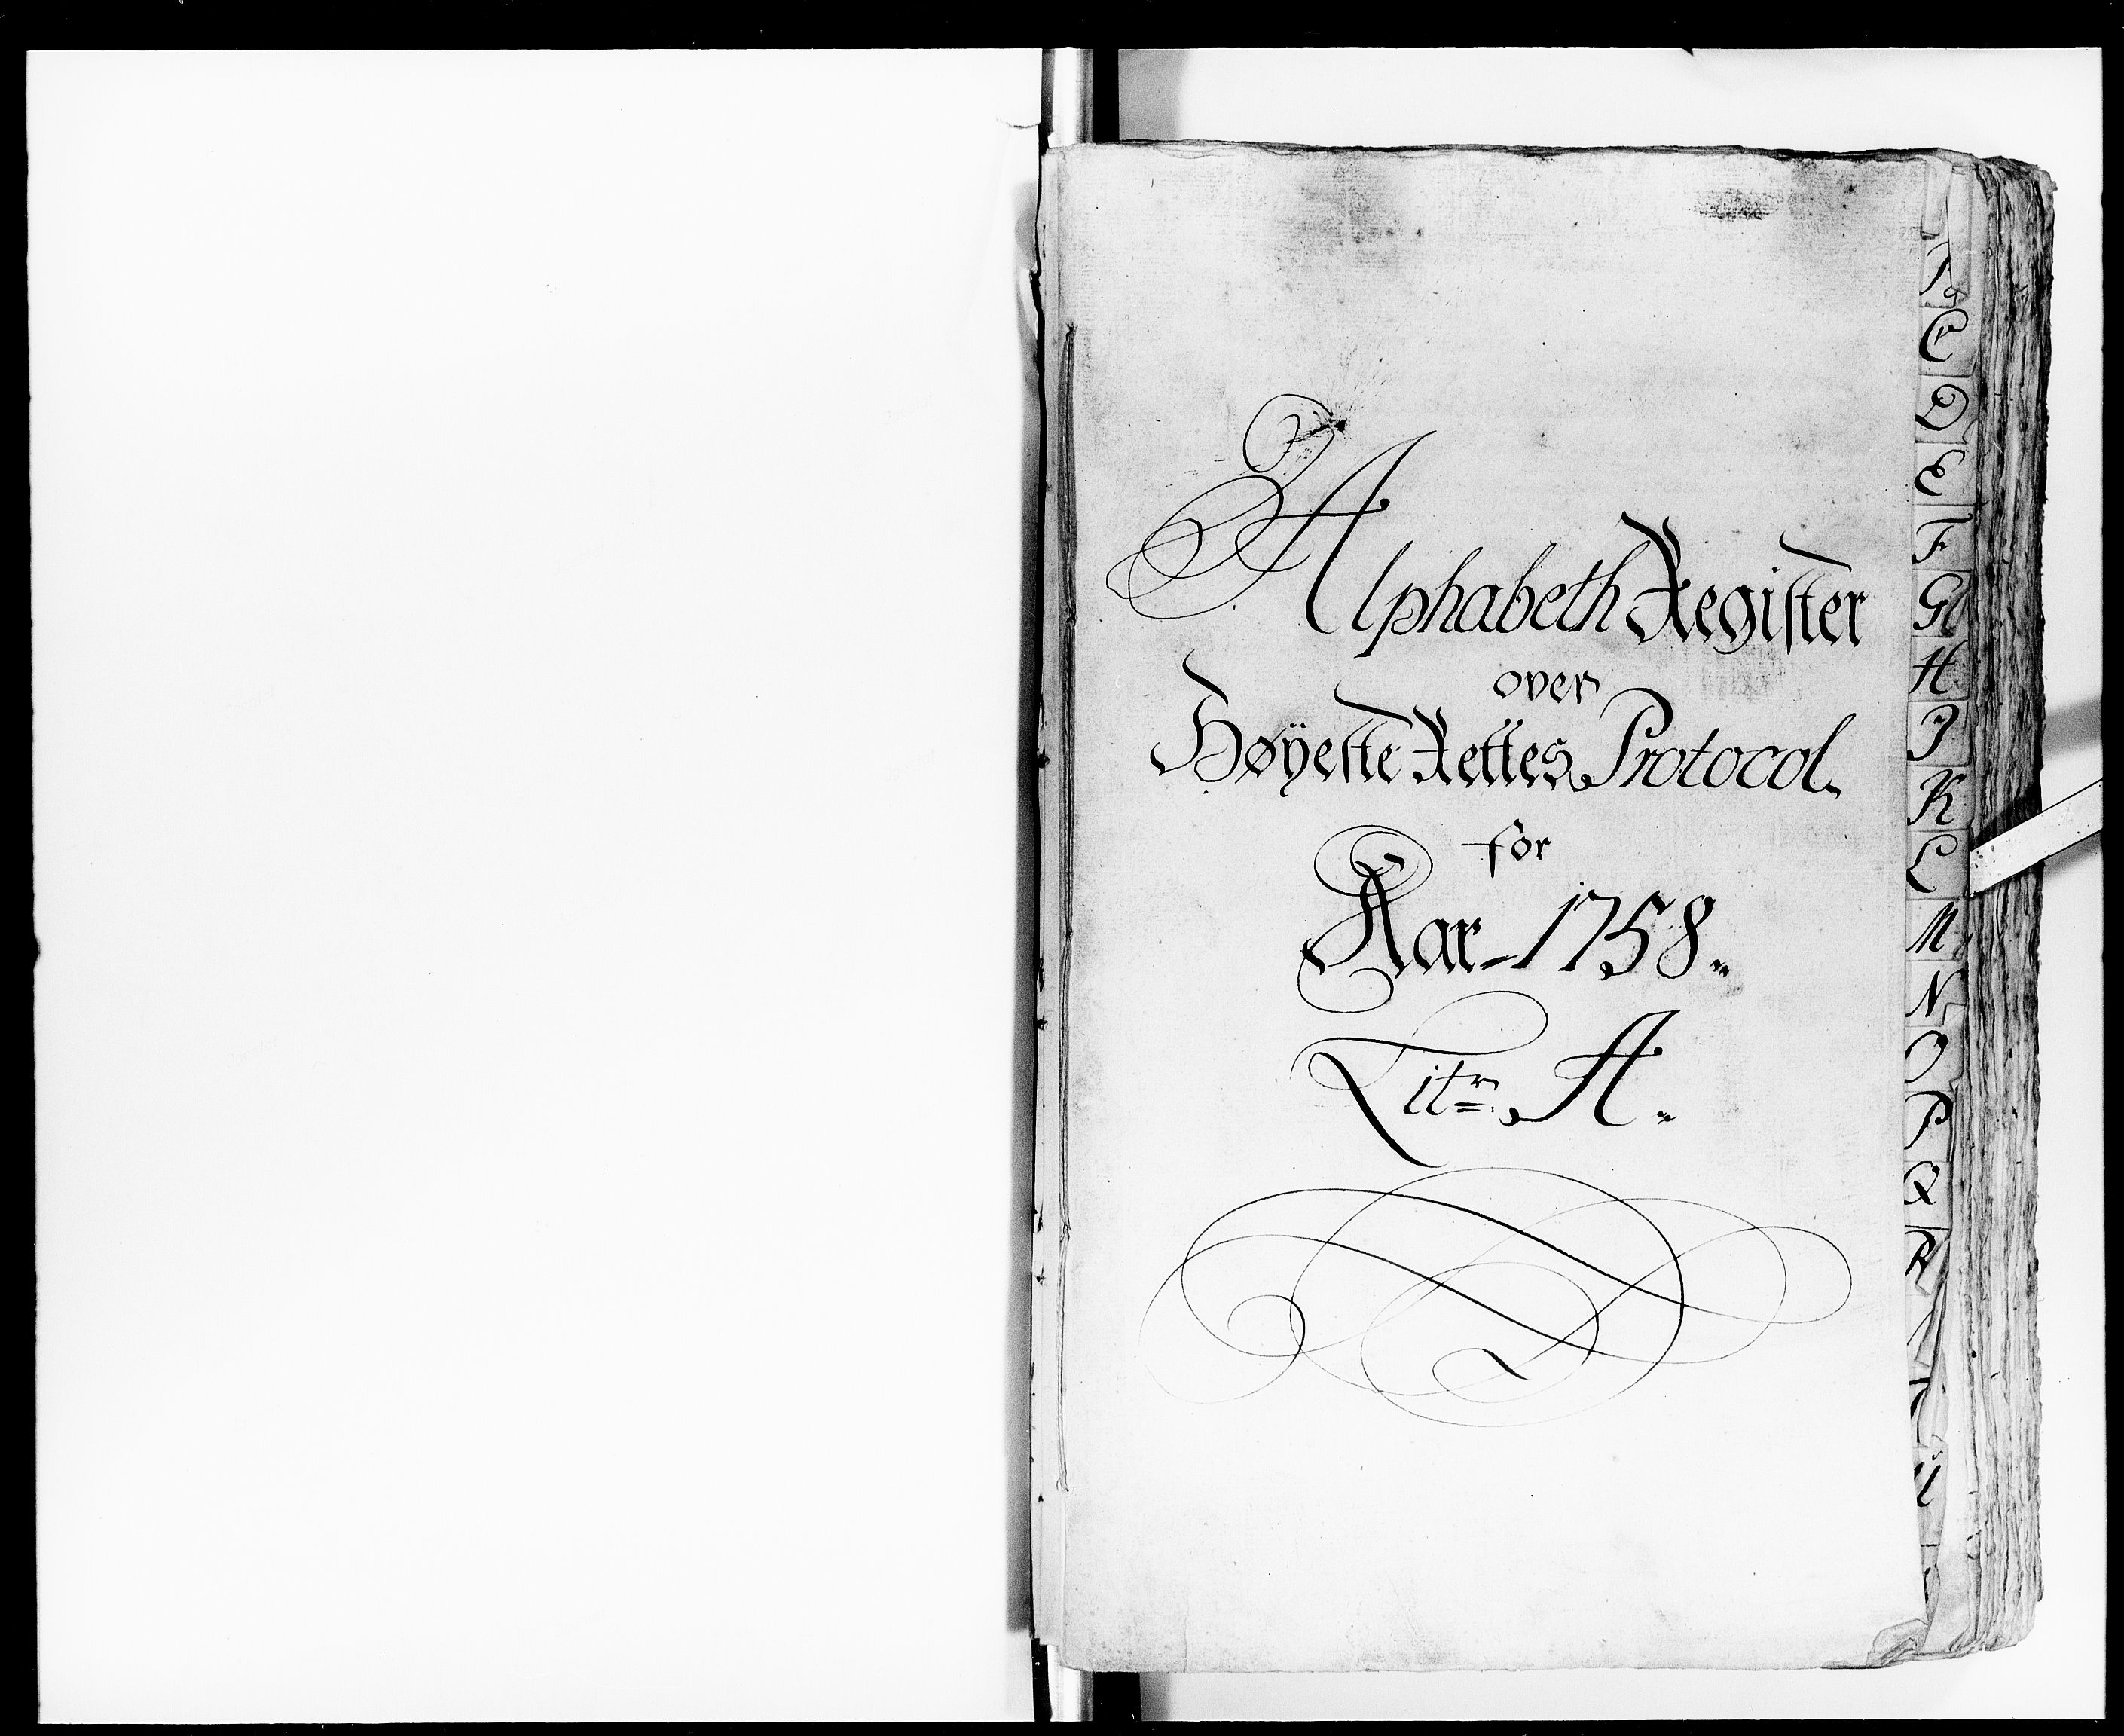 Alphabeth Register
over
Høÿeste Rettes Protocol.
for
Aar 1758.
Litr. A.
C
D
E
F
G
H
I
K
L
M
N
O
P
Q
R